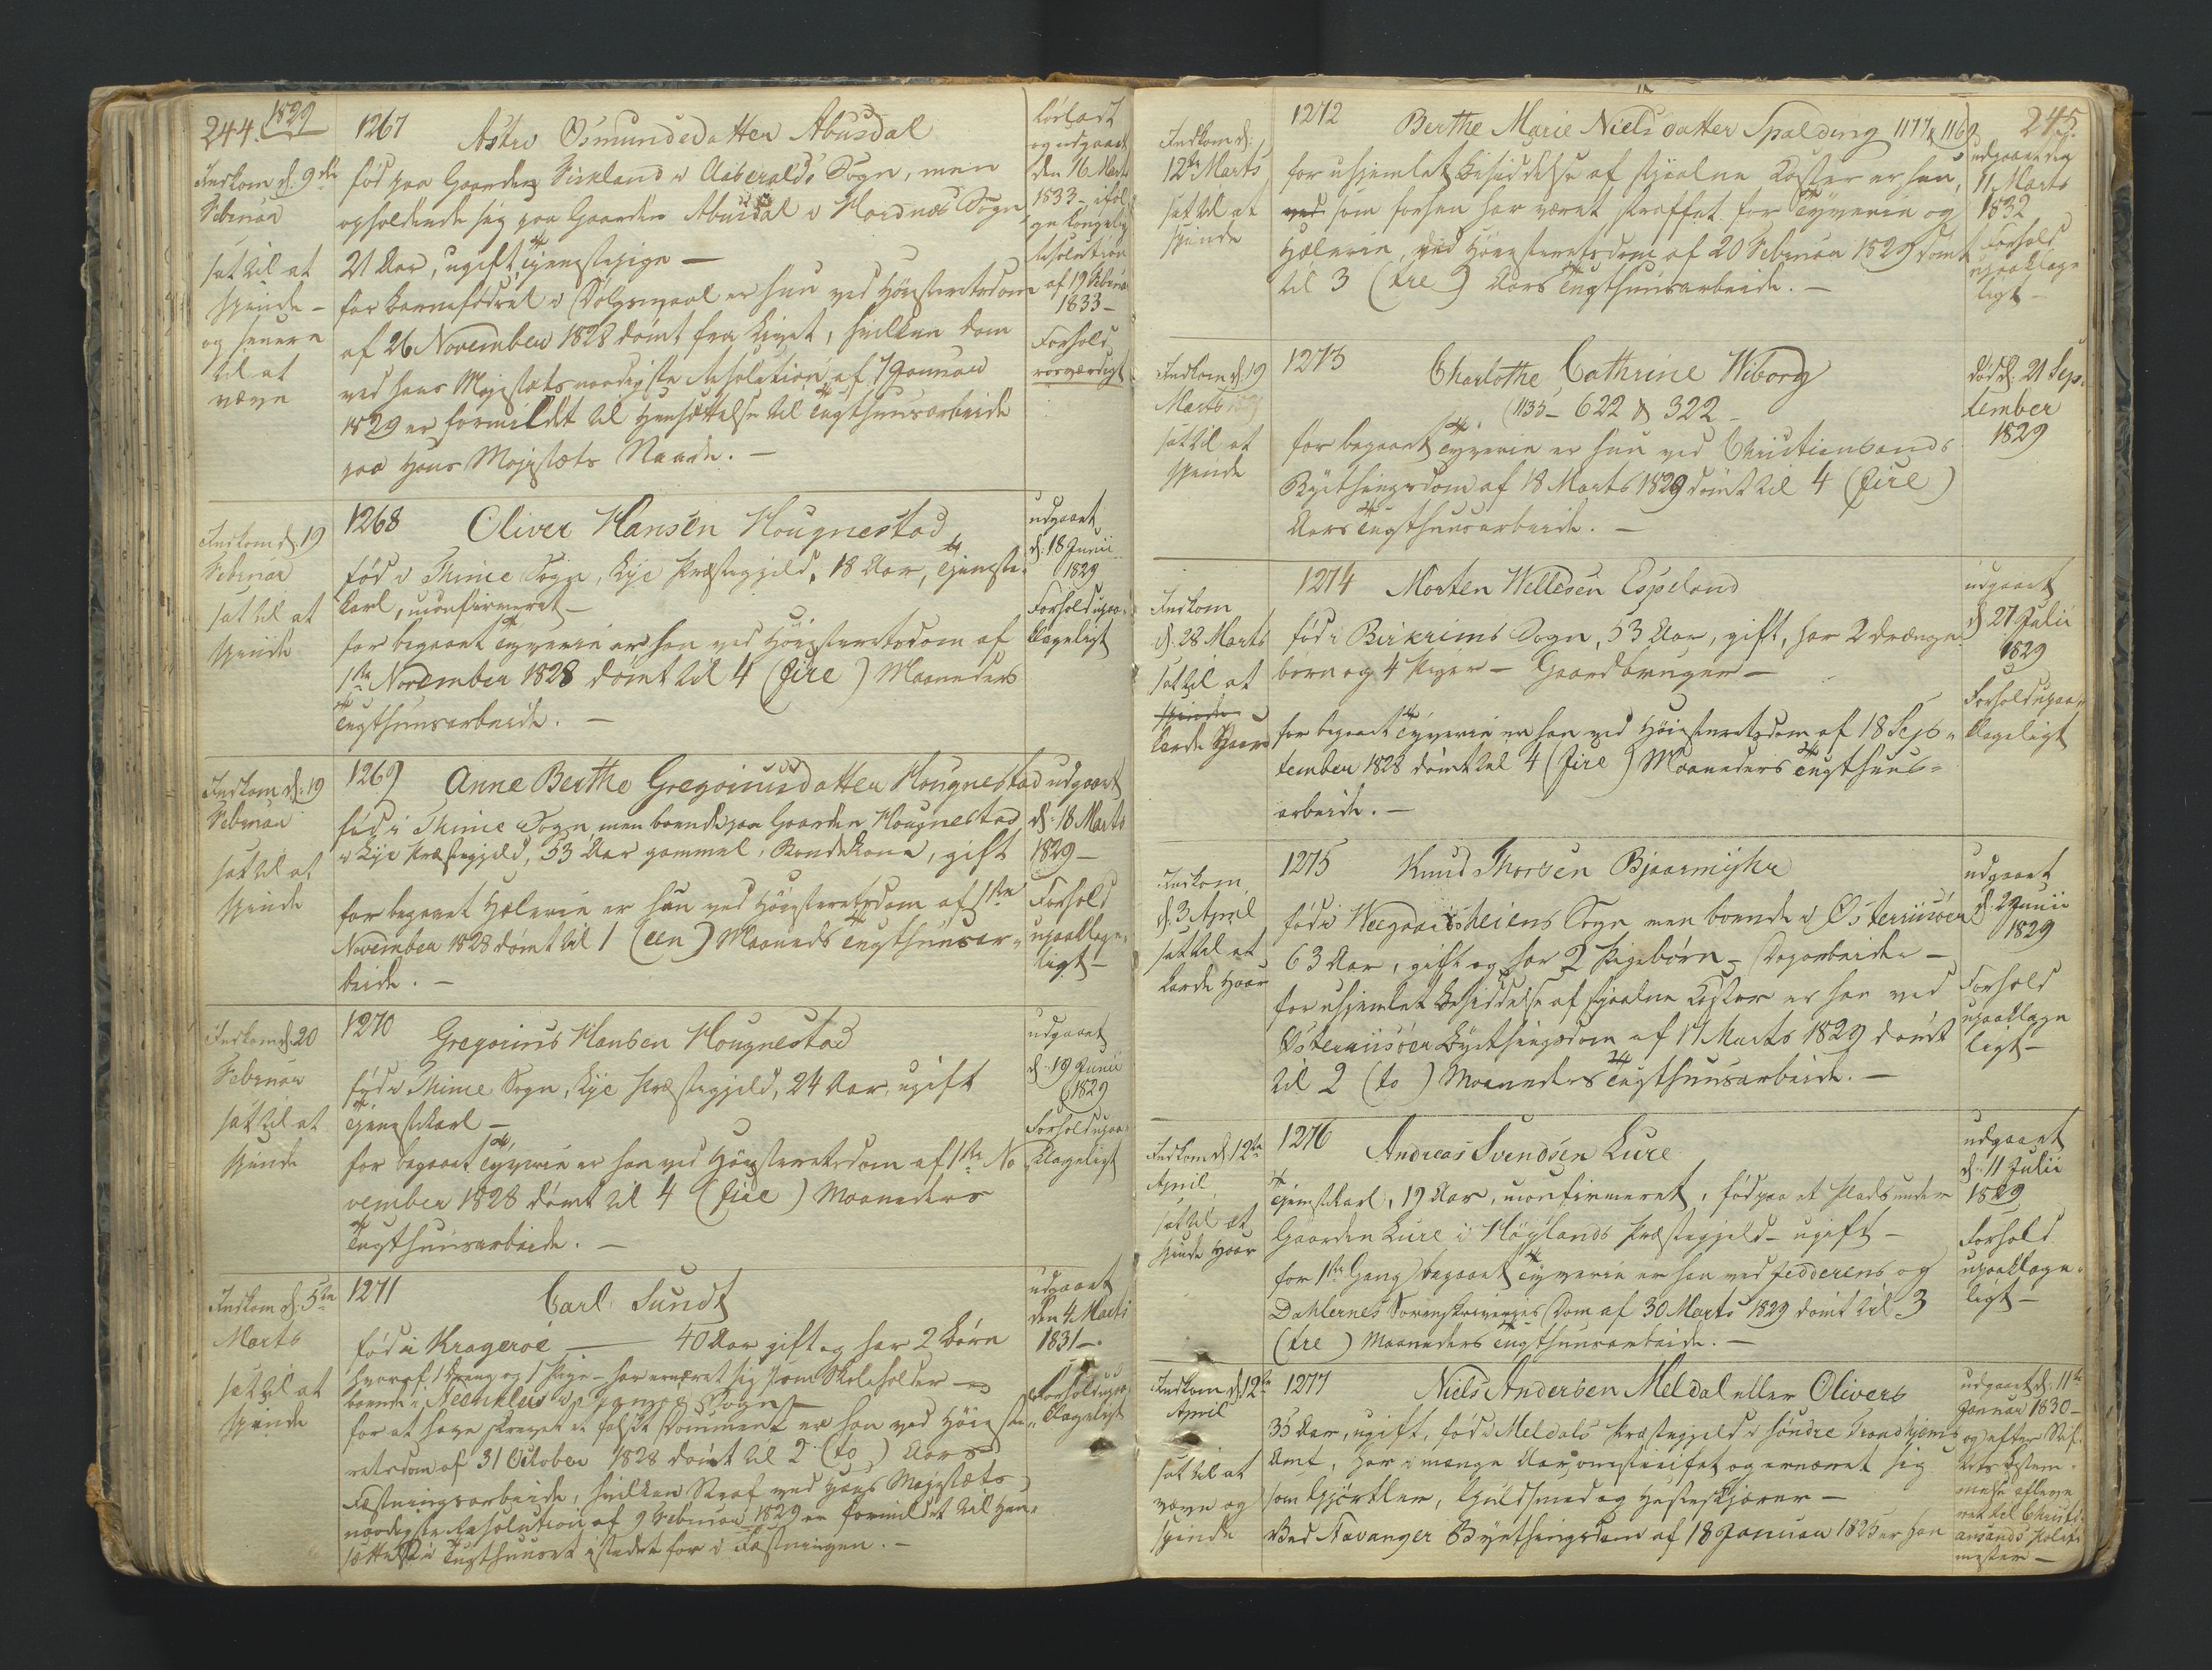 244. 1829
Indkom d. 9de
Februar
sat til at
spinde –
og senere
til at
væve
1267 Astri Osmundsdatter Abusdal
fød paa Gaarden Birkland i Aaseralds Sogn, men
opholdende sig paa Gaarden Abusdal i Hordnæs Sogn
21 Aar, ugift Tjenestepige –
for Barnefødsel i Dølgsmaal er hun ved Høiesteretsdom
af 26 November 1828 dømt fra Livet, hvilken Dom
ved Hans Majestæts naadigste Resolution af 7 Januar
1829 er formildet til Hensættelse til Tugthuusarbeide
paa Hans Majestæts Naade. –
Løsladt
og udgaaet
den 16 Marts
1833 – iføl
ge Kongelig
Resolution
af 19 Februar
1833 –
Forhold
rosværdigt
Indkom d. 19
Februar
sat til at
spinde
1268 Oliver Hansen Hougnestad
fød i Thime Sogn, Lye Præstegjeld, 18 Aar, Tjeneste-
karl, uconfirmeret –
for begaaet Tyverie er han ved Høiesteretsdom af
1ste November 1828 dømt til 4 (fire) Maaneders
Tugthuusarbeide. –
udgaaet
d. 18 Junii
1829
Forhold upaa-
klageligt
Indkom d. 19
Februar
sat til at
spinde
1269 Anne Berthe Gregoriusdatter Hougnestad
fød i Thime Sogn, men boende paa Gaarden Hougnestad
i Lye Præstegjeld, 53 Aar gammel, Bondekone, gift
for begaaet Hælerie er hun ved Høiesteretsdom af 1ste
November 1828 dømt til 1 (een) Maaneds Tugthuusar-
beide. –
udgaaet
d. 18 Marts
1829 –
Forhold
upaaklage-
ligt –
Indkom d. 20
Februar
sat til at
spinde
1270 Gregorius Hansen Hougnestad
fød i Thime Sogn, Lye Præstegjeld, 24 Aar, ugift
Tjenestekarl –
for begaaet Tyverie er han ved Høiesteretsdom af 1ste No
vember 1828 dømt til 4 (fire) Maaneders
Tugthuusarbeide. –
udgaaet
d. 19 Junii
1829
Forhold upaa-
klageligt
Indkom d. 5te
Marts
sat til at
spinde
1271 Carl Sundt
fød i Krageroe – 40 Aar gift og har 2 Børn
hvoraf 1 Dreng og 1 Pige – har ernæret sig som Skoleholder –
boende i Sogn –
for at have skrevet et falskt Document er han ved Høieste
retsdom af 31 October 1828 dømt til 2 (to) Aars
Fæstningsarbeide, hvilken Straf ved Hans Majestæts
naadigste Resolution af 9 Februar 1829 er formildet til Hen-
sættelse i Tugthuuset istedet for i Fæstningen. –
udgaaet
den 4 Marts
1831 –
Forhold upaa-
klageligt
245.
Indkom d.
12te Marts
sat til at
spinde
1272 Berthe Marie Nielsdatter Spalding 1177 & 1169
for uhjemlet Besiddelse af stjaalne Koster er hun,
ved som forhen har været straffet for Tyverie og
Hælerie, ved Høiesteretsdom af 20 Februar 1829 dømt
til 3 (tre) Aars Tugthuusarbeide. –
udgaaet d.
11 Marts
1832
Forhold
upaaklage
ligt –
Indkom d. 19
Marts
sat til at
spinde
1273 Charlothe Cathrine Wiborg
(1135 – 622 & 322 –
for begaaet Tyverie er hun ved Christiansands
Byethingsdom af 18 Marts 1829 dømt til 4 (fire)
Aars Tugthuusarbeide. –
død d. 21 Sep-
tember
1829
Indkom
d. 28 Marts
sat til at
spinde
karde Haar
1274 Morten Wellesen Espeland
fød i Birkrims Sogn, 53 Aar, gift, har 2 Drenge-
børn og 4 Piger – Gaardbruger –
for begaaet Tyverie er han ved Høiesteretsdom af 18 Sep-
tember 1828 dømt til 4 (fire) Maaneders Tugthuus-
arbeide. –
udgaaet
d. 27 Julii
1829
Forhold upaa-
klageligt
Indkom
d. 3 April
sat til at
karde Haar
1275 Knud Thorsen Bjaarmyhr
fød i Weegaardsheiens Sogn men boende i Østeriisøer
63 Aar, gift og har 2 Pigebørn – Dagarbeider –
for uhjemlet Besiddelse af stjaalne Koster er han ved
Østerriisøer Byethingsdom af 17 Marts 1829 dømt
til 2 (to) Maaneders Tugthuusarbeide. –
udgaaet
d. 2 Junii
1829
Forhold
upaaklage
ligt –
Indkom d. 12te
April
sat til at
spinde Haar
1276 Andreas Svendsen Lure
Tjenestekarl, 19 Aar, uconfirmeret, fød paa et Plads under
Gaarden Lure i Høylands Præstegjeld – ugift –
for 1ste Gang begaaet Tyverie er han ved Jedderens og
Dahlernes Sorenskriveries Dom af 30 Marts 1829 dømt til 3
(tre) Maaneders Tugthuusarbeide. –
udgaaet
d. 11 Julii
1829
Forhold
upaaklage-
ligt –
Indkom d. 12te
April
sat til at
væve og
spinde
1277 Niels Andersen Meldal eller Olivers
35 Aar, ugift, fød i Meldals Præstegjeld i søndre Trondhjems
Amt, har i mange Aar omstreifet og ernæret sig
som Gjørtler, Guldsmed og Hesteskjærer –
Ved Stavanger Byethingsdom af 18 Januar 1825 er han
udgaaet d. 11te
Januar 1830 –
og efter Stif-
tets Bestem-
melse afleve
ret til Christi-
ansands Politi
mester –